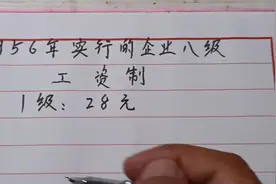 956年实行的企业八级
工资制
1级：28元